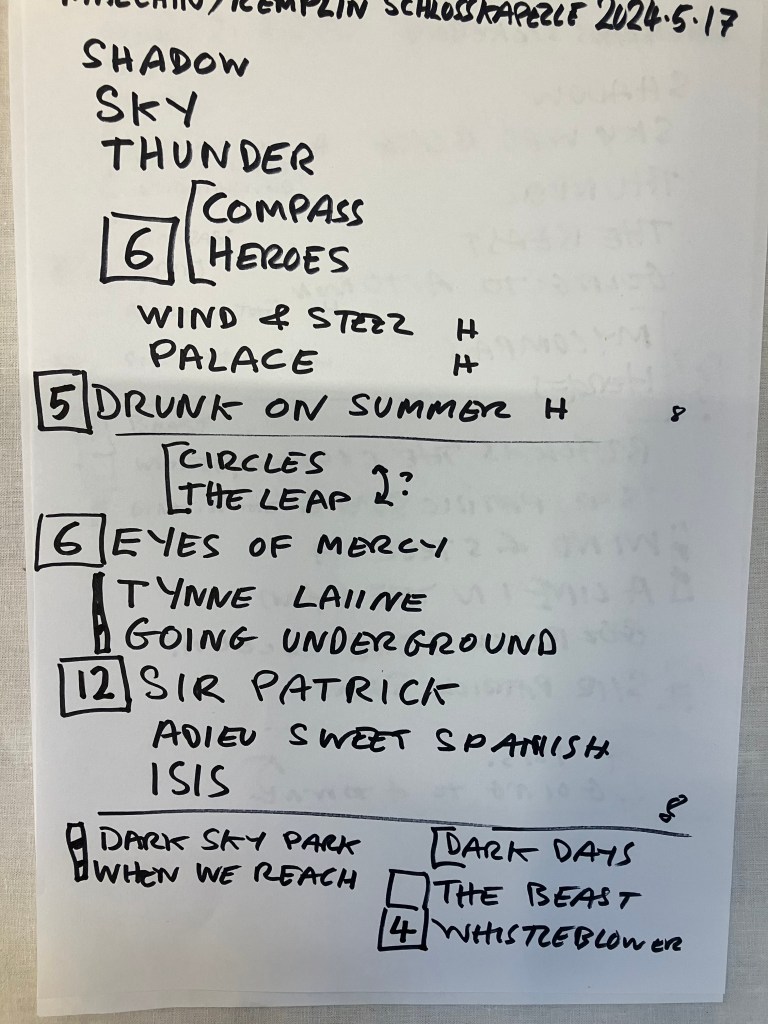 REMPLIN SCHLOSSKAPELLE 2024.5.17
SHADOW
SKY
THUNDER
COMPASS
6 HEROES
WIND & STEEL H
PALACE H
5 DRUNK ON SUMMER H 8
CIRCLES
THE LEAP ?
6 EYES OF MERCY
TYNNE LAIINE
GOING UNDERGROUND
12 SIR PATRICK
ADIEU SWEET SPANISH
ISIS
8
DARK SKY PARK
WHEN WE REACH
DARK DAYS
THE BEAST
4 WHISTLEBLOWER